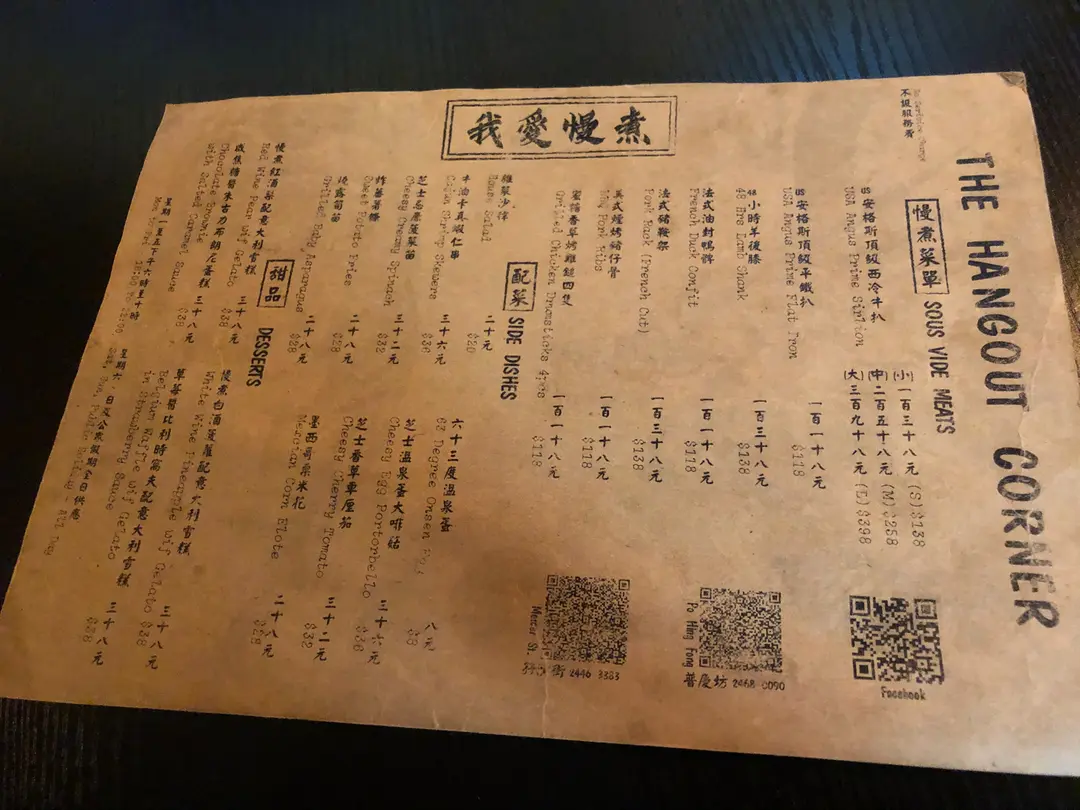 THE HANGOUT CORNER
不設服務費
慢煮菜單 SOUS VIDE MEATS
US安格斯頂級西冷牛扒
USA Angus Prime Sirloin
(小) 一百三十八元 (S) $138
(中) 二百五十八元 (M) $258
(大) 三百九十八元 (L) $398
US安格斯頂級平鐵扒 一百一十八元
USA Angus Prime Flat Iron $118
48小時羊後膝 一百三十八元
48 Hrs Lamb Shank $138
法式油封鴨髀 一百一十八元
French Duck Confit $118
法式豬鞍架 一百三十八元
Pork Rack (French Cut) $138
美式煙烤豬仔骨 一百一十八元
BBQ Pork Ribs $118
蜜糖香草烤雞鎚四隻 一百一十八元
Grilled Chicken Drumsticks 4pcs $118
我愛慢煮
配菜 SIDE DISHES
雜菜沙律 二十元
House Salad $20
牛油卡真蝦仁串 三十六元
Cajun Shrimp Skewers $36
芝士忌廉菠菜苗 三十二元
Cheesy Creamy Spinach $32
炸蕃薯條 二十八元
Sweet Potato Fries $28
燒露筍苗 二十八元
Grilled Baby Asparagus $28
六十三度溫泉蛋 八元
63 Degree Onsen Egg $8
芝士溫泉蛋大啡菇 三十六元
Cheesy Egg Portobello $36
芝士香草車厘茄 三十二元
Cheesy Cherry Tomato $32
墨西哥粟米花 二十八元
Mexican Corn Elote $28
甜品 DESSERTS
慢煮紅酒梨配意大利雪糕 三十八元
Red Wine Pear wif Gelato $38
鹹焦糖醬朱古力布朗尼蛋糕 三十八元
Chocolate Brownie $38
with Salted Caramel Sauce
慢煮白酒菠蘿配意大利雪糕 三十八元
White Wine Pineapple wif Gelato $38
草莓醬比利時窩夫配意大利雪糕 三十八元
Belgium Waffle wif Gelato $38
in Strawberry Sauce
星期一至五下午六時至十時
星期六、日及公眾假期全日供應
Facebook
Po Hing Fong
普慶坊 2468 0090
Mercer St.
街 2446 3383